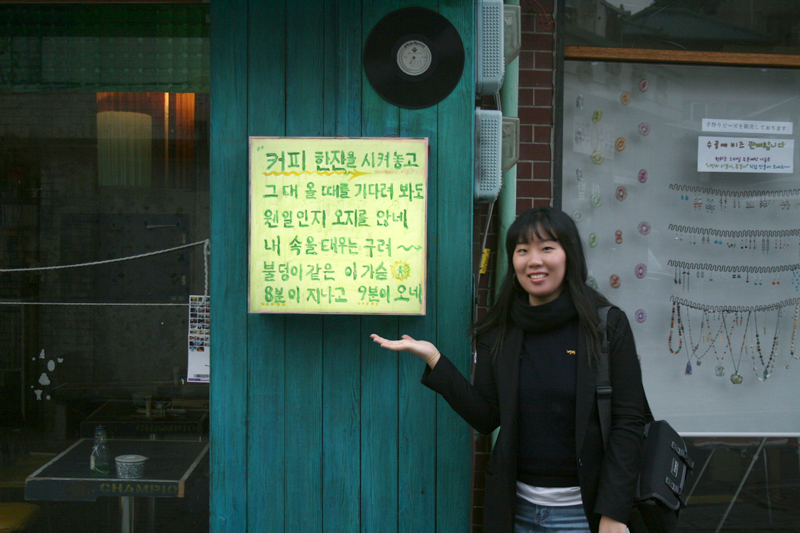 "커피 한잔을 시켜 놓고
그대 올 때를 기다려 봐도
웬일인지 오지를 않네
내 속을 태우는 구려~
불덩이 같은 이 가슴
8분이 지나고 9분이 오네
手作りビーズを販売しております
수공예 비즈 판매합니다
CHAMPIO